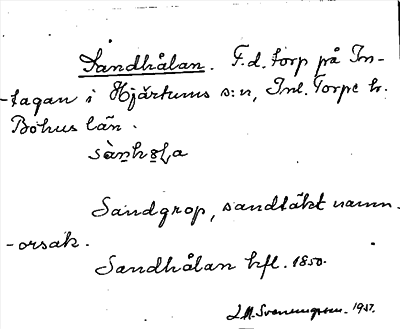 Sandhålan. F.d. torp på In-
-tagan i Hjärtums s:n, Inl. Torpe hd.
Bohus län.
sàn̲hɷLa
Sandgrop, sandtäkt namn.
-orsak.
Sandhålan hfl. 1850.
1957.